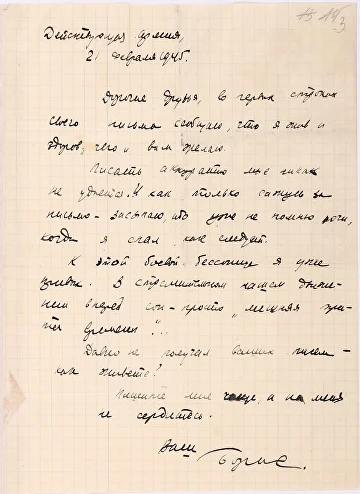 Действующая армия,
21 февраля 1945.
Дорогие друзья, в первых строках
своего письма сообщаю, что я жив и
здоров, чего и вам желаю.
Писать аккуратно мне никак
не удается. И как только сажусь за
письмо - засыпаю, ибо уже не помню ночи,
когда я спал как следует.
К этой боевой бессоннице я уже
привык. В стремительном нашем движе-
нии вперед сон - просто "лишняя тра-
та времени"...
Давно не получал ваших писем -
как живете?
Пишите мне чаще, а на меня
не сердитесь.
Ваш
Борис.